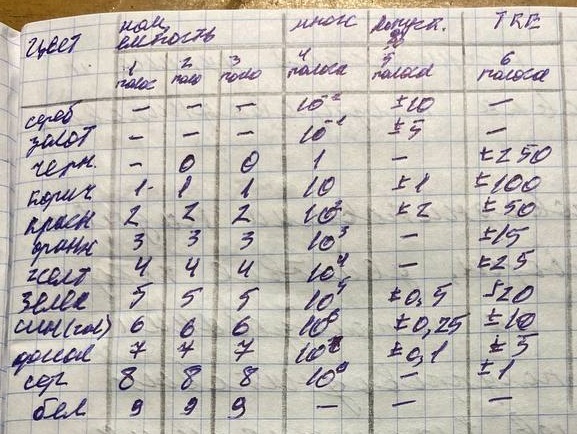 цвет ном. емкость множ допуск. % TKE
1 полос 2 поло 3 поло 4 полоса 5 полоса 6 полоса
сереб — — — 10⁻² ±10 —
золот — — — 10⁻¹ ±5 —
черн. - 0 0 1 — ±250
корич 1 1 1 10 ±1 ±100
красн 2 2 2 10² ±2 ±50
оранж 3 3 3 10³ — ±15
желт 4 4 4 10⁴ — ±25
зелен 5 5 5 10⁵ ±0,5 ±20
син(гол) 6 6 6 10⁶ ±0,25 ±10
фиол 7 7 7 10⁷ ±0,1 ±5
сер 8 8 8 — ±1
бел 9 9 9 — — —